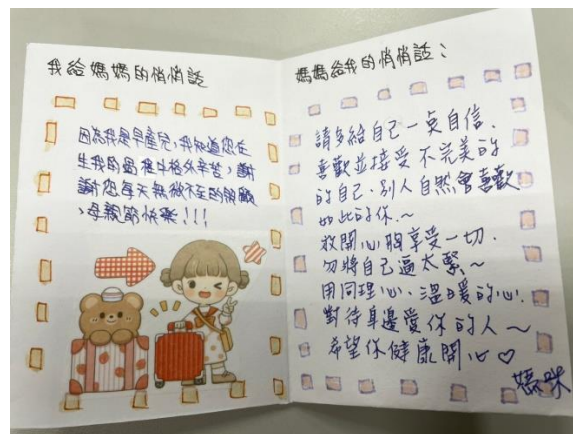 我給媽媽的悄悄話
因為我是早產兒,我知道您在
生我的過程中格外辛苦,謝
謝您每天無微不至的照顧
,母親節快樂!!!
媽媽給我的悄悄話:
請多給自己一點自信.
喜歡並接受不完美的
的自己.別人自然會喜歡
如此的你.~
放開心胸享受一切.
勿將自己逼太緊~
用同理心、溫暖的心.
對待身邊愛你的人~
希望你健康開心♡
媽咪